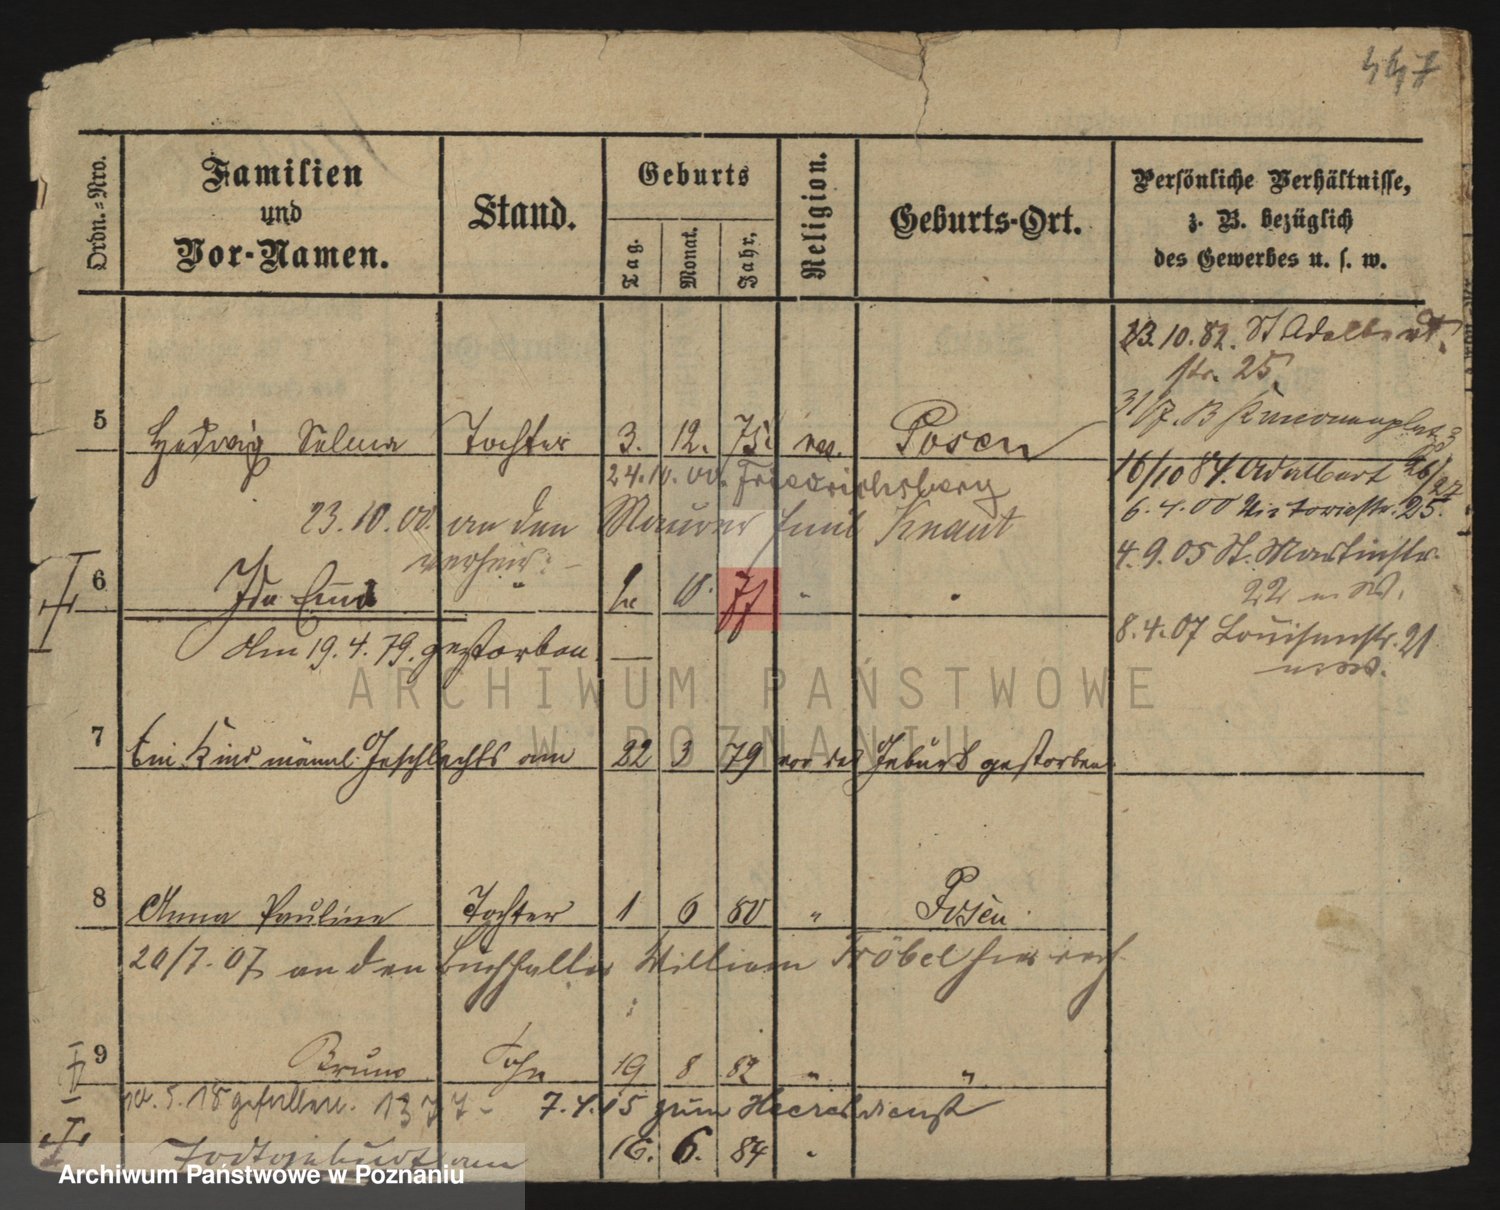 447
Ordn.-Nro.
Familien
und
Vor-Namen.
Stand.
Geburts
Tag.
Monat.
Jahr.
Religion.
Geburts-Ort.
Persönliche Verhältnisse,
z. B. bezüglich
des Gewerbes u. s. w.
23.10.82. St Adalbert
str. 25.
5 Hedwig Selma Tochter 3. 12. 75. Posen
24.10.00. Friedrichsberg
16/10 84. Adalbert 26/27
23.10.00. an den Maurer Emil Knaut
verheir.
6.4.00 Victoriastr. 25.
4.9.05 St. Martinstr.
22
6 Ida 10. 77
8.4.07 Louisenstr. 21
Am 19.4.79. gestorben
ARCHIWUM PAŃSTWOWE
W POZNANIU
7 Ein Kind männl. Geschlechts am 22 3 79 vor der Geburt gestorben
8 Anna Pauline Tochter 1 6 80 " Posen
20/7.07 an den Buchhalter William Fröbel hier verh
9 Bruno Sohn 19 8 82 " "
5.18 gefallen. 1377 - 7.4.15 zum Heeresdienst
Todtgeburt am 16. 6. 84
Archiwum Państwowe w Poznaniu